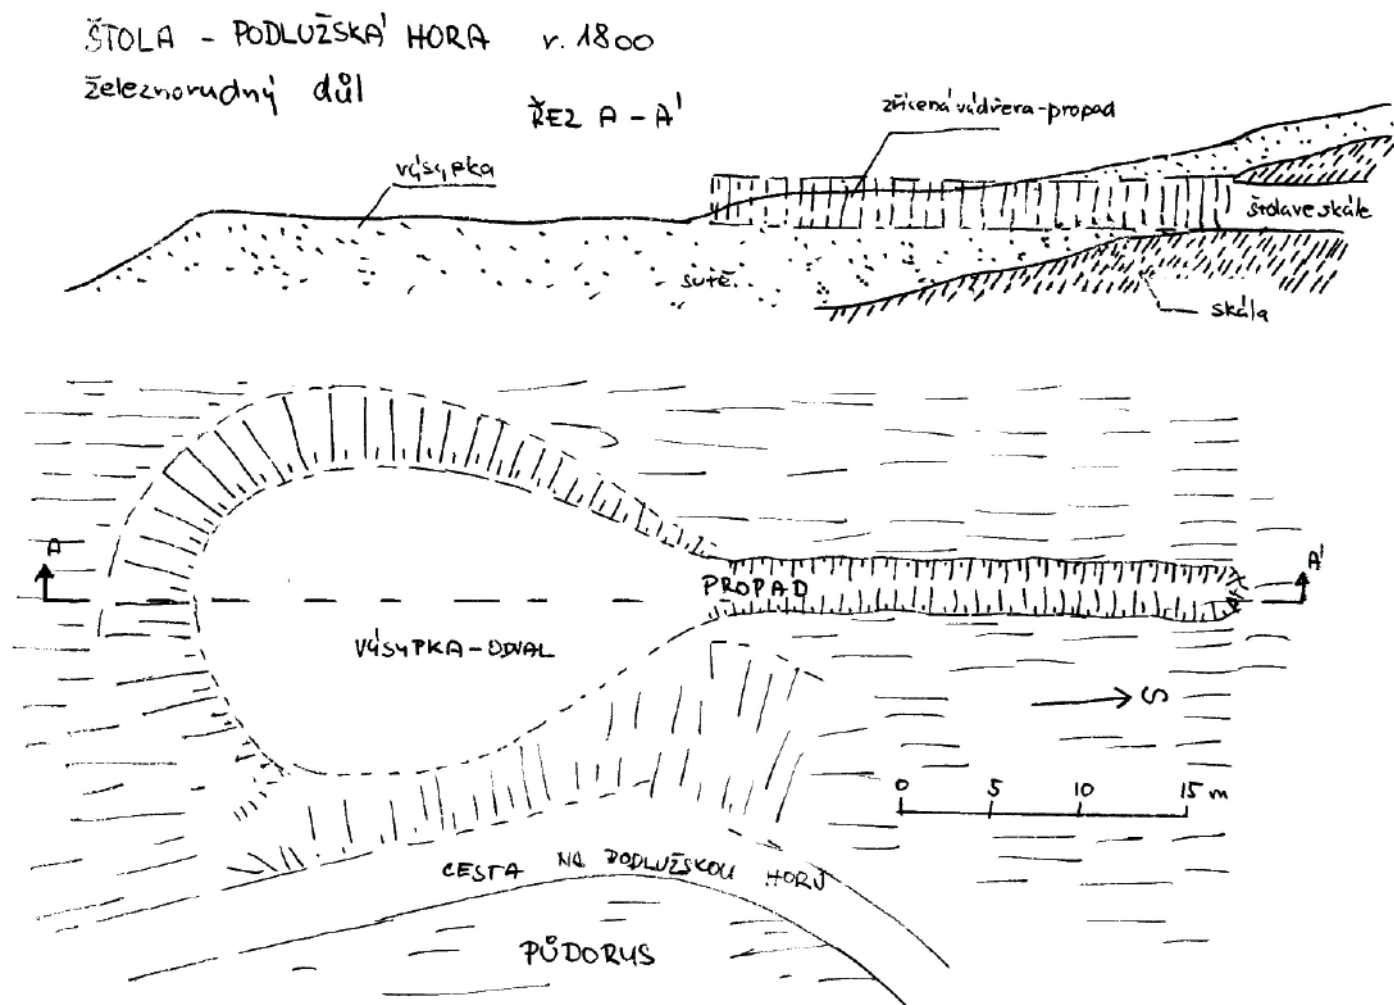 ŠTOLA - PODLUŽSKÁ HORA r. 1800
železnorudný důl
ŘEZ A - A'
zřícená výdřeva-propad
výsypka
štola ve skále
sutě
skála
A
A'
PROPAD
VÝSYPKA-ODVAL
S
0 5 10 15 m
CESTA NA PODLUŽSKOU HORU
PŮDORYS